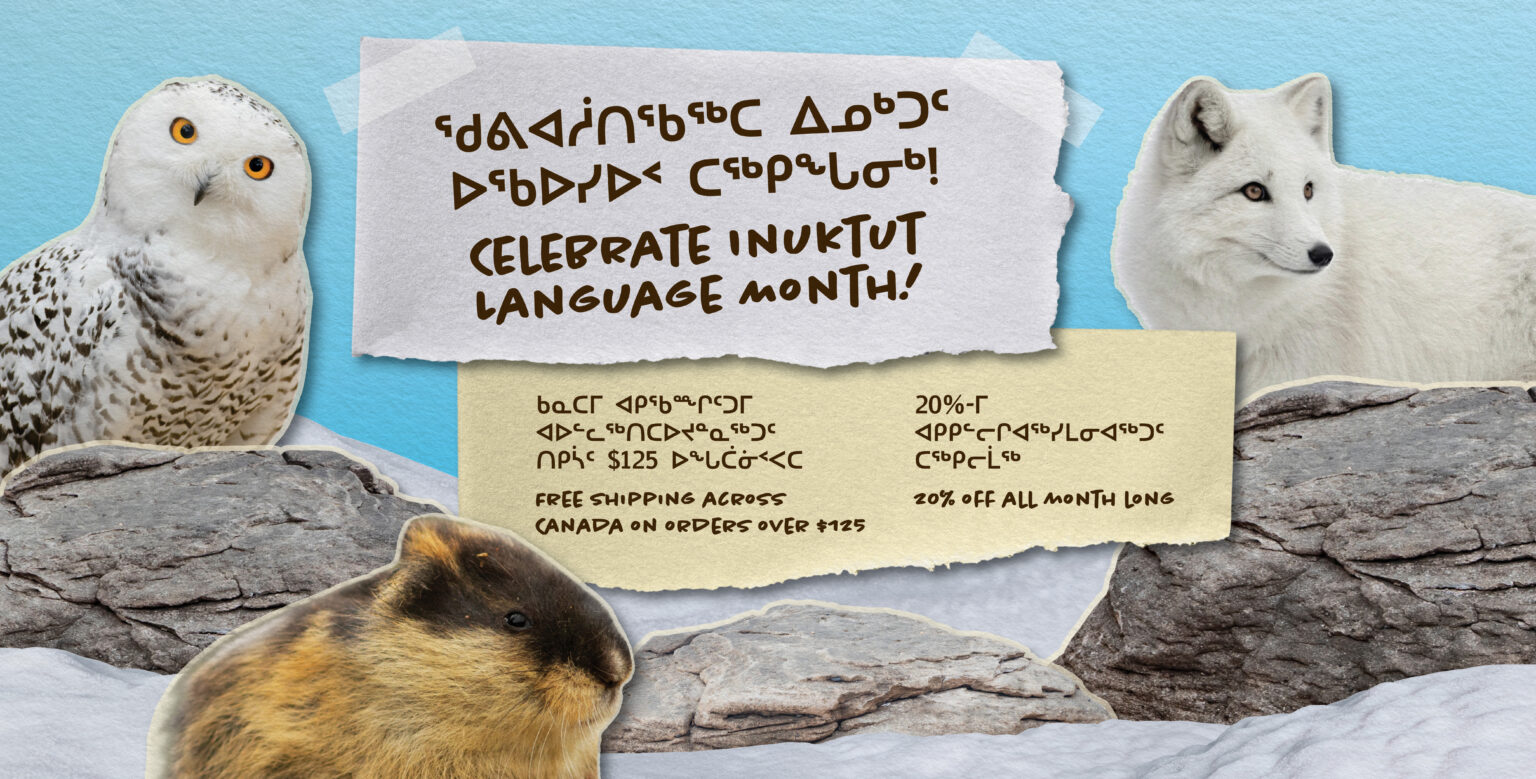 ᖁᕕᐊᓲᑎᖃᖅᑕ ᐃᓄᒃᑐᑦ
ᐅᖃᐅᓯᐅᑉ ᑕᖅᑭᖓᓂᒃ!
CELEBRATE INUKTUT
LANGUAGE MONTH!
ᑲᓇᑕᒥ ᐊᑭᖃᙱᑦᑐᒥ
ᐊᐅᓪᓚᖅᑎᑕᐅᔪᓐᓇᖅᑐᑦ
ᑎᑭᓵᑦ $125 ᐅᖓᑖᓃᑉᐸᑕ
FREE SHIPPING ACROSS
CANADA ON ORDERS OVER $125
20%-ᒥ
ᐊᑭᑭᓪᓕᒋᐊᖅᓯᒪᓂᐊᖅᑐᑦ
ᑕᖅᑭᓕᒫᖅ
20% OFF ALL MONTH LONG